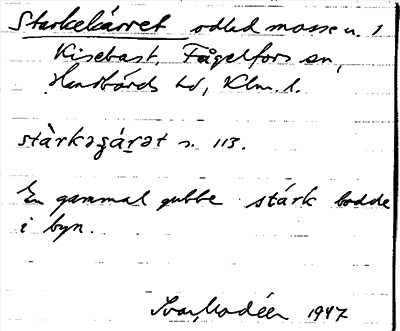 Starkekärret odlad mosse u. 1
Kisebast, Fågelfors sn,
Handbörds hd, Klm. l.
stàrkəʂárət s. 113.
En gammal gubbe stárk bodde
i byn.
Ivar Modéer 1947